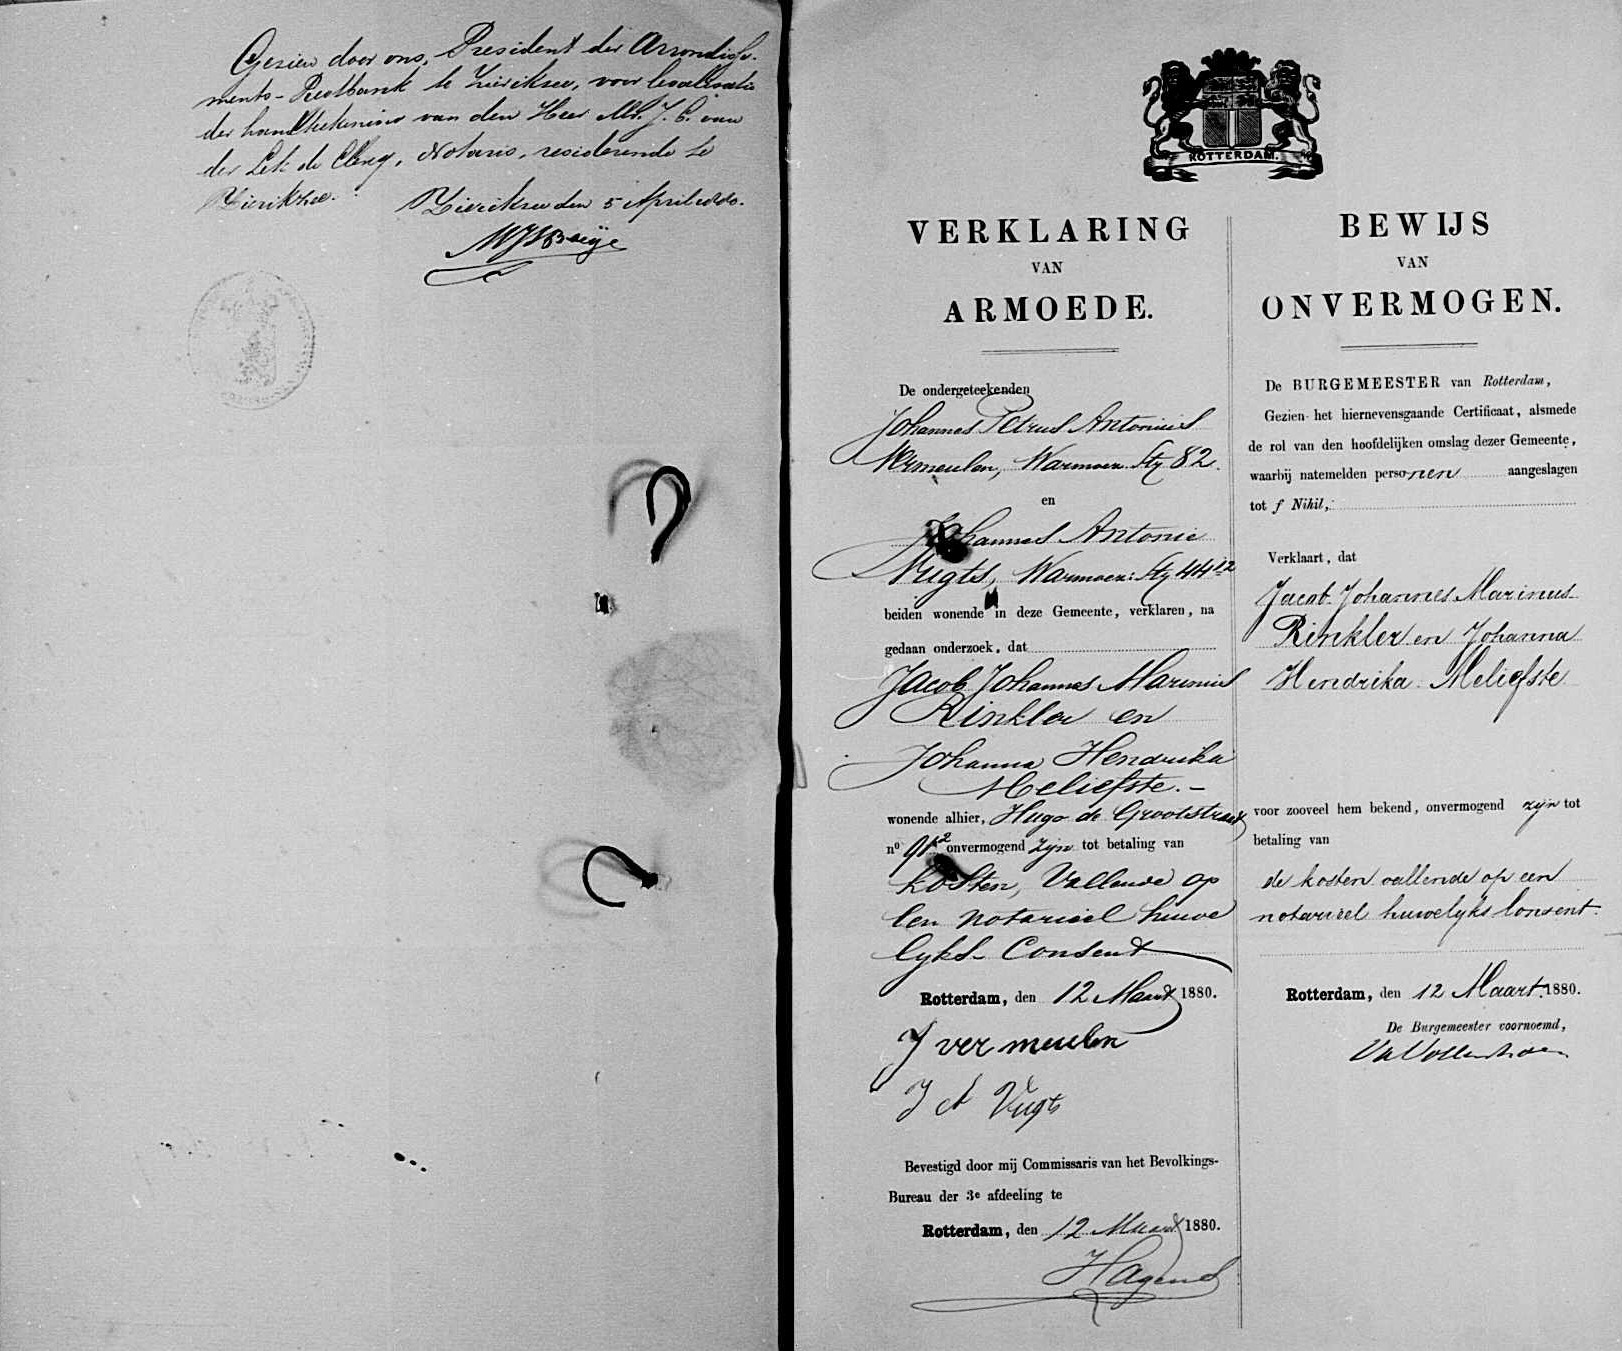 Gezien door ons, President der Arrondisse-
ments-Rechtbank te Zierikzee, voor legalisatie
der handteekening van den Heer Mr. J. C. van
der Lek de Clercq, Notaris, resideerende te
Zierikzee.
Zierikzee den 5 April 1880.
ROTTERDAM.
VERKLARING
VAN
ARMOEDE.
De ondergeteekenden
Johannes Petrus Antonius
Vermeulen, Warmoez: Stg 82.
en
Johannes Antonie
Vugts, Warmoez: Stg 44
beiden wonende in deze Gemeente, verklaren, na
gedaan onderzoek, dat
Jacob Johannes Marinus
Rinkler en
Johanna Hendrika
Meliefste.-
wonende alhier, Hugo de Grootstraat
no onvermogend zijn tot betaling van
kosten, vallende op
een notarieel huwe
lyks- Consent
Rotterdam, den 12 Maart 1880.
J vermeulen
J A Vugts
Bevestigd door mij Commissaris van het Bevolkings-
Bureau der 3e afdeeling te
Rotterdam, den 12 Maart 1880.
BEWIJS
VAN
ONVERMOGEN.
De BURGEMEESTER van Rotterdam,
Gezien het hiernevensgaande Certificaat, alsmede
de rol van den hoofdelijken omslag dezer Gemeente,
waarbij natemelden personen aangeslagen
tot f Nihil,
Verklaart, dat
Jacob Johannes Marinus
Rinkler en Johanna
Hendrika Meliefste
voor zooveel hem bekend, onvermogend zijn tot
betaling van
de kosten vallende op een
notarieel huwelyks Consent.
Rotterdam, den 12 Maart 1880.
De Burgemeester voornoemd,